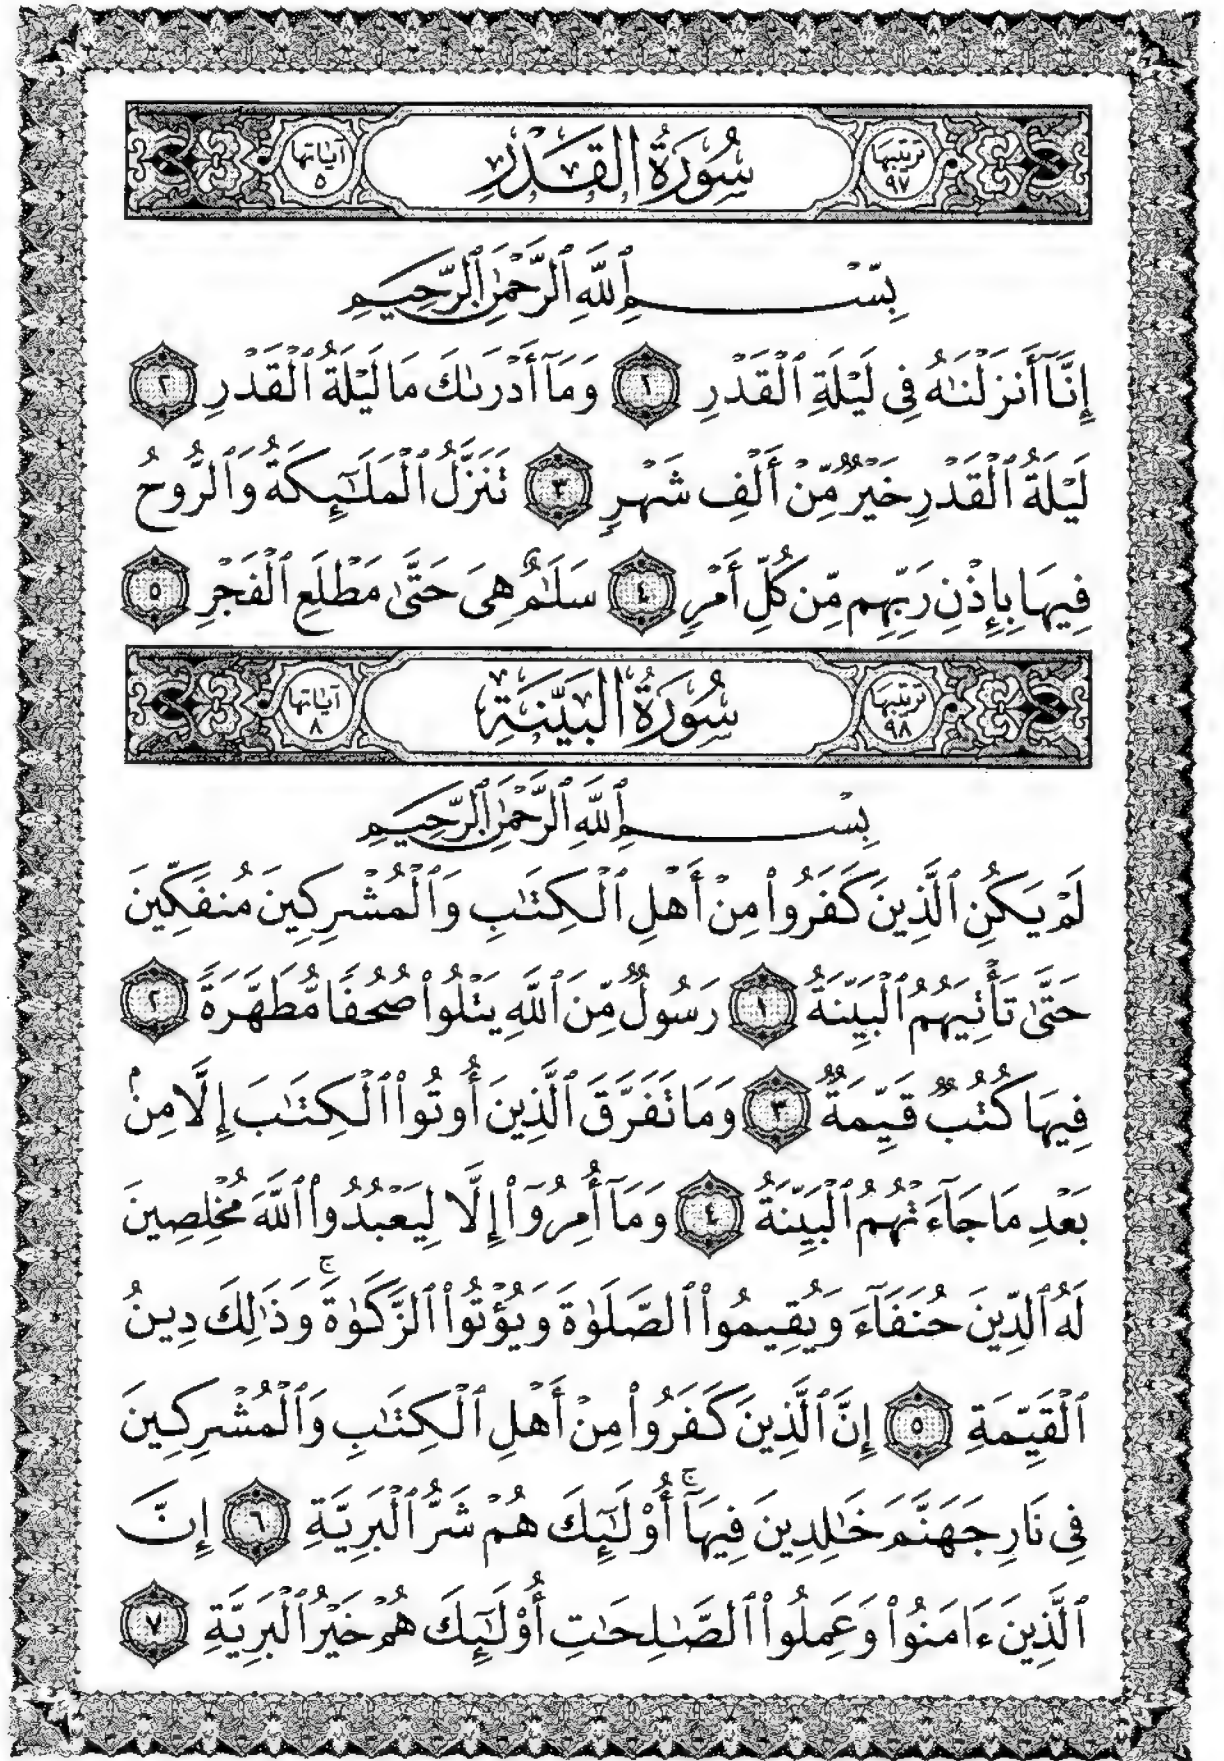 ترتيبها ٩٧ سُورَةُ القَدۡرِ آياتها ٥
بِسۡمِ ٱللَّهِ ٱلرَّحۡمَٰنِ ٱلرَّحِيمِ
إِنَّآ أَنزَلۡنَٰهُ فِي لَيۡلَةِ ٱلۡقَدۡرِ ١ وَمَآ أَدۡرَىٰكَ مَا لَيۡلَةُ ٱلۡقَدۡرِ ٢
لَيۡلَةُ ٱلۡقَدۡرِ خَيۡرٌ مِّنۡ أَلۡفِ شَهۡرٍ ٣ تَنَزَّلُ ٱلۡمَلَٰٓئِكَةُ وَٱلرُّوحُ
فِيهَا بِإِذۡنِ رَبِّهِم مِّن كُلِّ أَمۡرٍ ٤ سَلَٰمٌ هِيَ حَتَّىٰ مَطۡلَعِ ٱلۡفَجۡرِ ٥
ترتيبها ٩٨ سُورَةُ البَيِّنَةِ آياتها ٨
بِسۡمِ ٱللَّهِ ٱلرَّحۡمَٰنِ ٱلرَّحِيمِ
لَمۡ يَكُنِ ٱلَّذِينَ كَفَرُواْ مِنۡ أَهۡلِ ٱلۡكِتَٰبِ وَٱلۡمُشۡرِكِينَ مُنفَكِّينَ
حَتَّىٰ تَأۡتِيَهُمُ ٱلۡبَيِّنَةُ ١ رَسُولٌ مِّنَ ٱللَّهِ يَتۡلُواْ صُحُفًا مُّطَهَّرَةً ٢
فِيهَا كُتُبٌ قَيِّمَةٌ ٣ وَمَا تَفَرَّقَ ٱلَّذِينَ أُوتُواْ ٱلۡكِتَٰبَ إِلَّا مِنۢ
بَعۡدِ مَا جَآءَتۡهُمُ ٱلۡبَيِّنَةُ ٤ وَمَآ أُمِرُوٓاْ إِلَّا لِيَعۡبُدُواْ ٱللَّهَ مُخۡلِصِينَ
لَهُ ٱلدِّينَ حُنَفَآءَ وَيُقِيمُواْ ٱلصَّلَوٰةَ وَيُؤۡتُواْ ٱلزَّكَوٰةَۚ وَذَٰلِكَ دِينُ
ٱلۡقَيِّمَةِ ٥ إِنَّ ٱلَّذِينَ كَفَرُواْ مِنۡ أَهۡلِ ٱلۡكِتَٰبِ وَٱلۡمُشۡرِكِينَ
فِي نَارِ جَهَنَّمَ خَٰلِدِينَ فِيهَآۚ أُوْلَٰٓئِكَ هُمۡ شَرُّ ٱلۡبَرِيَّةِ ٦ إِنَّ
ٱلَّذِينَ ءَامَنُواْ وَعَمِلُواْ ٱلصَّٰلِحَٰتِ أُوْلَٰٓئِكَ هُمۡ خَيۡرُ ٱلۡبَرِيَّةِ ٧